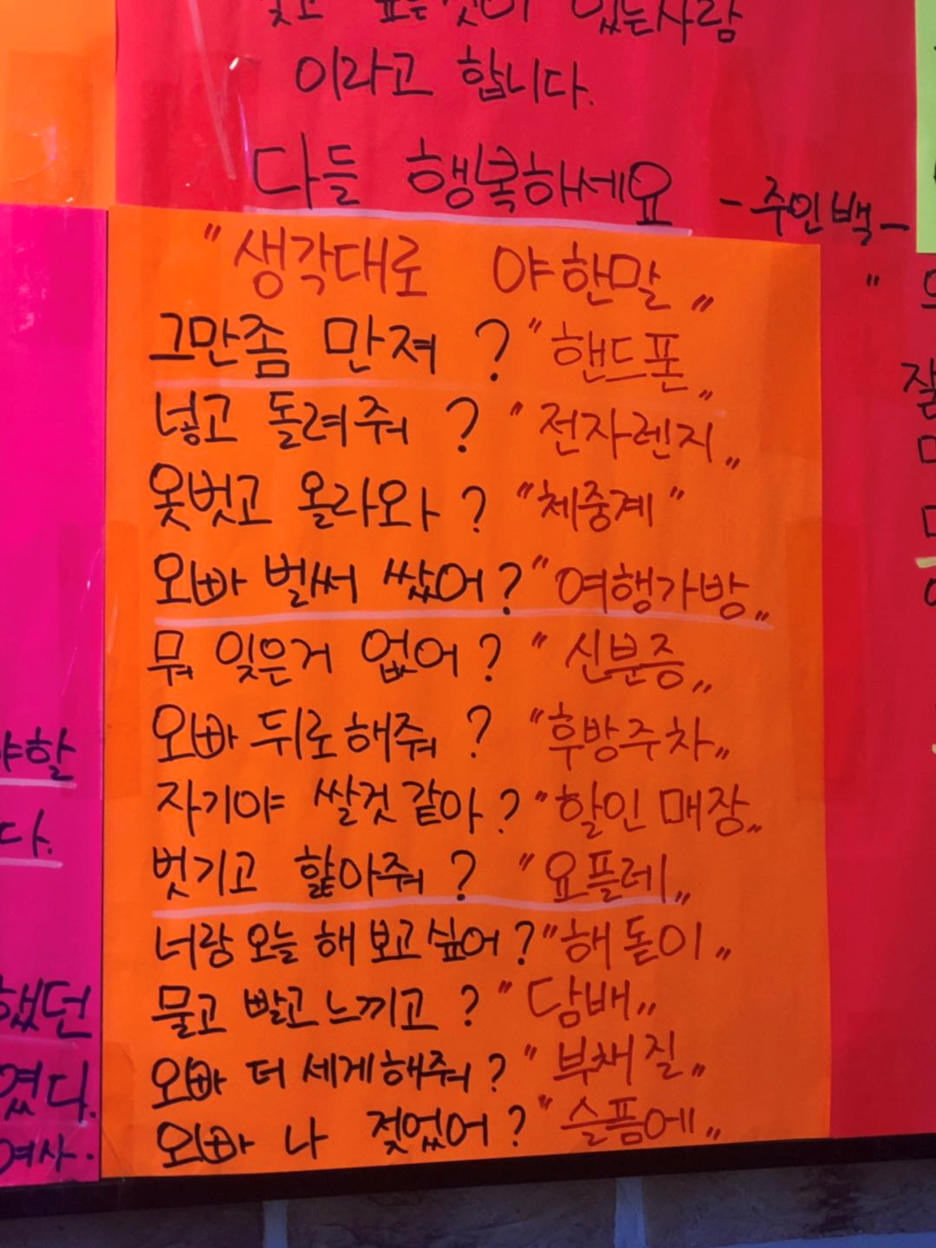 있는사람
이라고 합니다.
다들 행복하세요 -주인백-
"생각대로 야한말"
그만좀 만져 ? "핸드폰"
넣고 돌려줘 ? "전자렌지"
옷벗고 올라와 ? "체중계"
오빠 벌써 쌌어 ? "여행가방"
뭐 잊은거 없어 ? "신분증"
오빠 뒤로해줘 ? "후방주차"
자기야 쌀것같아 ? "할인매장"
벗기고 핥아줘 ? "요플레"
너랑 오늘 해 보고싶어 ? "해돋이"
물고 빨고 느끼고 ? "담배"
오빠 더 세게해줘 ? "부채질"
오빠 나 젖었어 ? "슬픔에"
야할
다.
했던
였다.
여사.